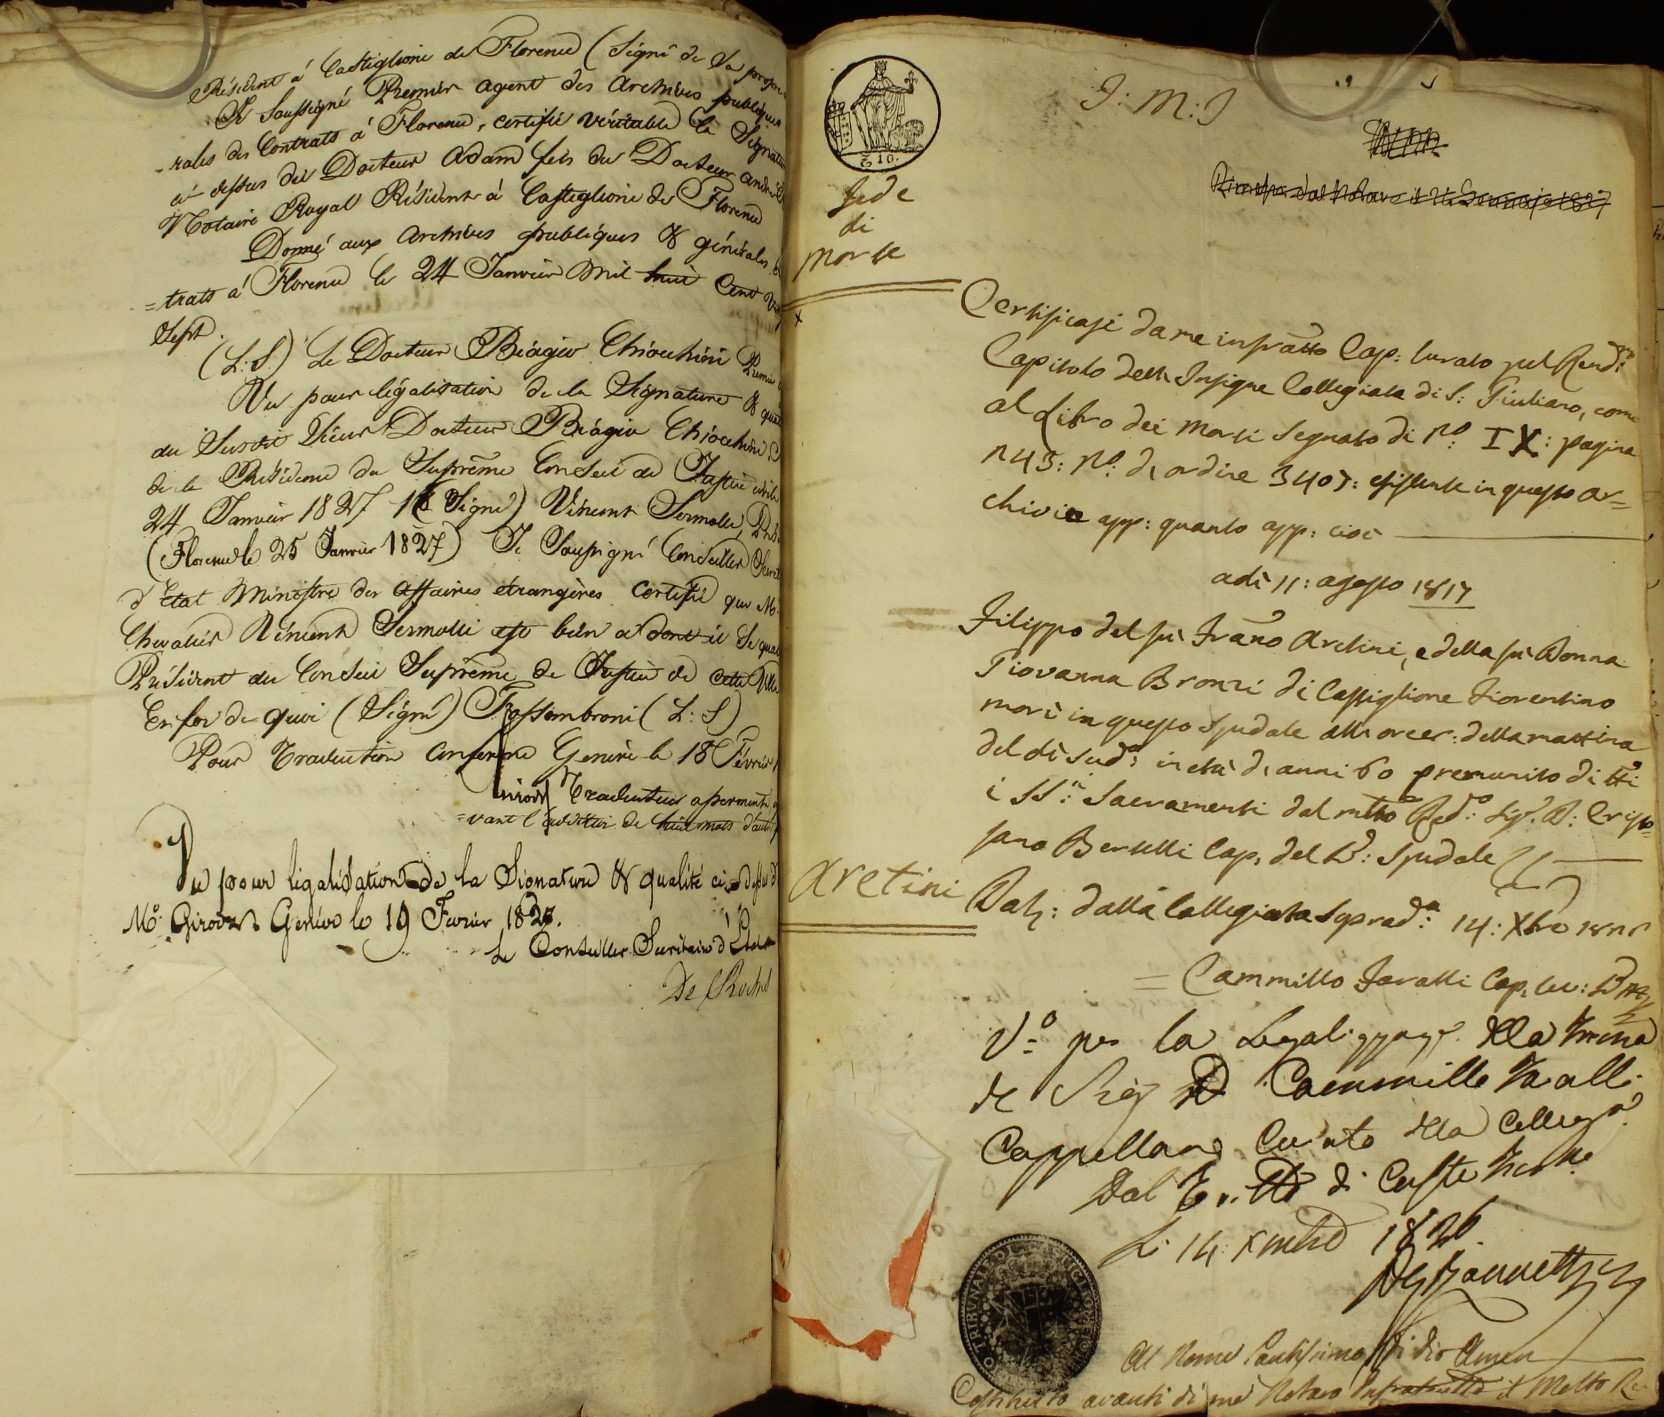 Résident à Castiglione de Florence (Signé de Sa propre
Je Soussigné Premier agent des Archives publiques
-rales des Contrats à Florence, certifie véritable la Signature
ci dessus du Docteur Adam fils du Docteur André
Notaire Royal Résident à Castiglione de Florence
Donné aux Archives publiques & générales
=trats à Florence le 24 Janvier Mil huit Cent Vingt
Sept.
(L: S.) Le Docteur Biagio Chiocchini Premier
Vu pour légalisation de la Signature & qualité
du Susdit Sieur Docteur Biagio Chiocchini
de la Présidence du Suprême Conseil de Justice
24 Janvier 1827 (Signé) Vincent Sermolli
(Florence le 25 Janvier 1827) Je Soussigné Conseiller
d'Etat Ministre des affaires étrangères certifie que Mr
Chevalier Vincent Sermolli est bien dont il Se
Président du Conseil Suprême de Justice de cette Ville
En foi de quoi (Signé) Fossombroni (L: S)
Pour Traduction Conforme Genève le 18 Février
Girod Traducteur assermenté
vant l'
Vu pour légalisation de la Signature & qualité ci-dessus de
Mr. Girod Genève le 19 Fevrier 1827.
Le Conseiller Secretaire d'Etat
De Roches
I: M: I
10.
Fede
di
Morte
Certificasi da me infratto Cap: Curato pel Rendmo
Capitolo dell'Insigne Collegiata di S: Giuliano, come
al Libro dei Morti Segnato di No: IX: pagina
No: d'ordine 3407: esistente in questo ar=
chivio app: quanto app: cioè
adì 11: agosto 1817
Filippo del fù Franco Aretini, e della fù Donna
Giovanna Bronzi di Castiglione Fiorentino
morì in questo Spedale alle ore della mattina
del dì Sudo: in età d'anni 60 premunito di tti
i SSi: Sacramenti dal mtto Redo: Sigr. D: Cristo=
fano Bertelli Cap: del Do: Spedale
Aretini
Data: dalla Collegiata Soprada: 14: Xbre 1826
= Cammillo Favalli Cap: Cu:
Vo= per la Legalizzaze. della Firma
del Sig D Cammillo Favalli
Cappellano Curato della Collega.
Dal di Castn Fiorno
Li 14 Xmbre 1826
Al Nome Santissimo di Dio Amen
Costituito avanti di me Notaro Infrascritto il Molto Re